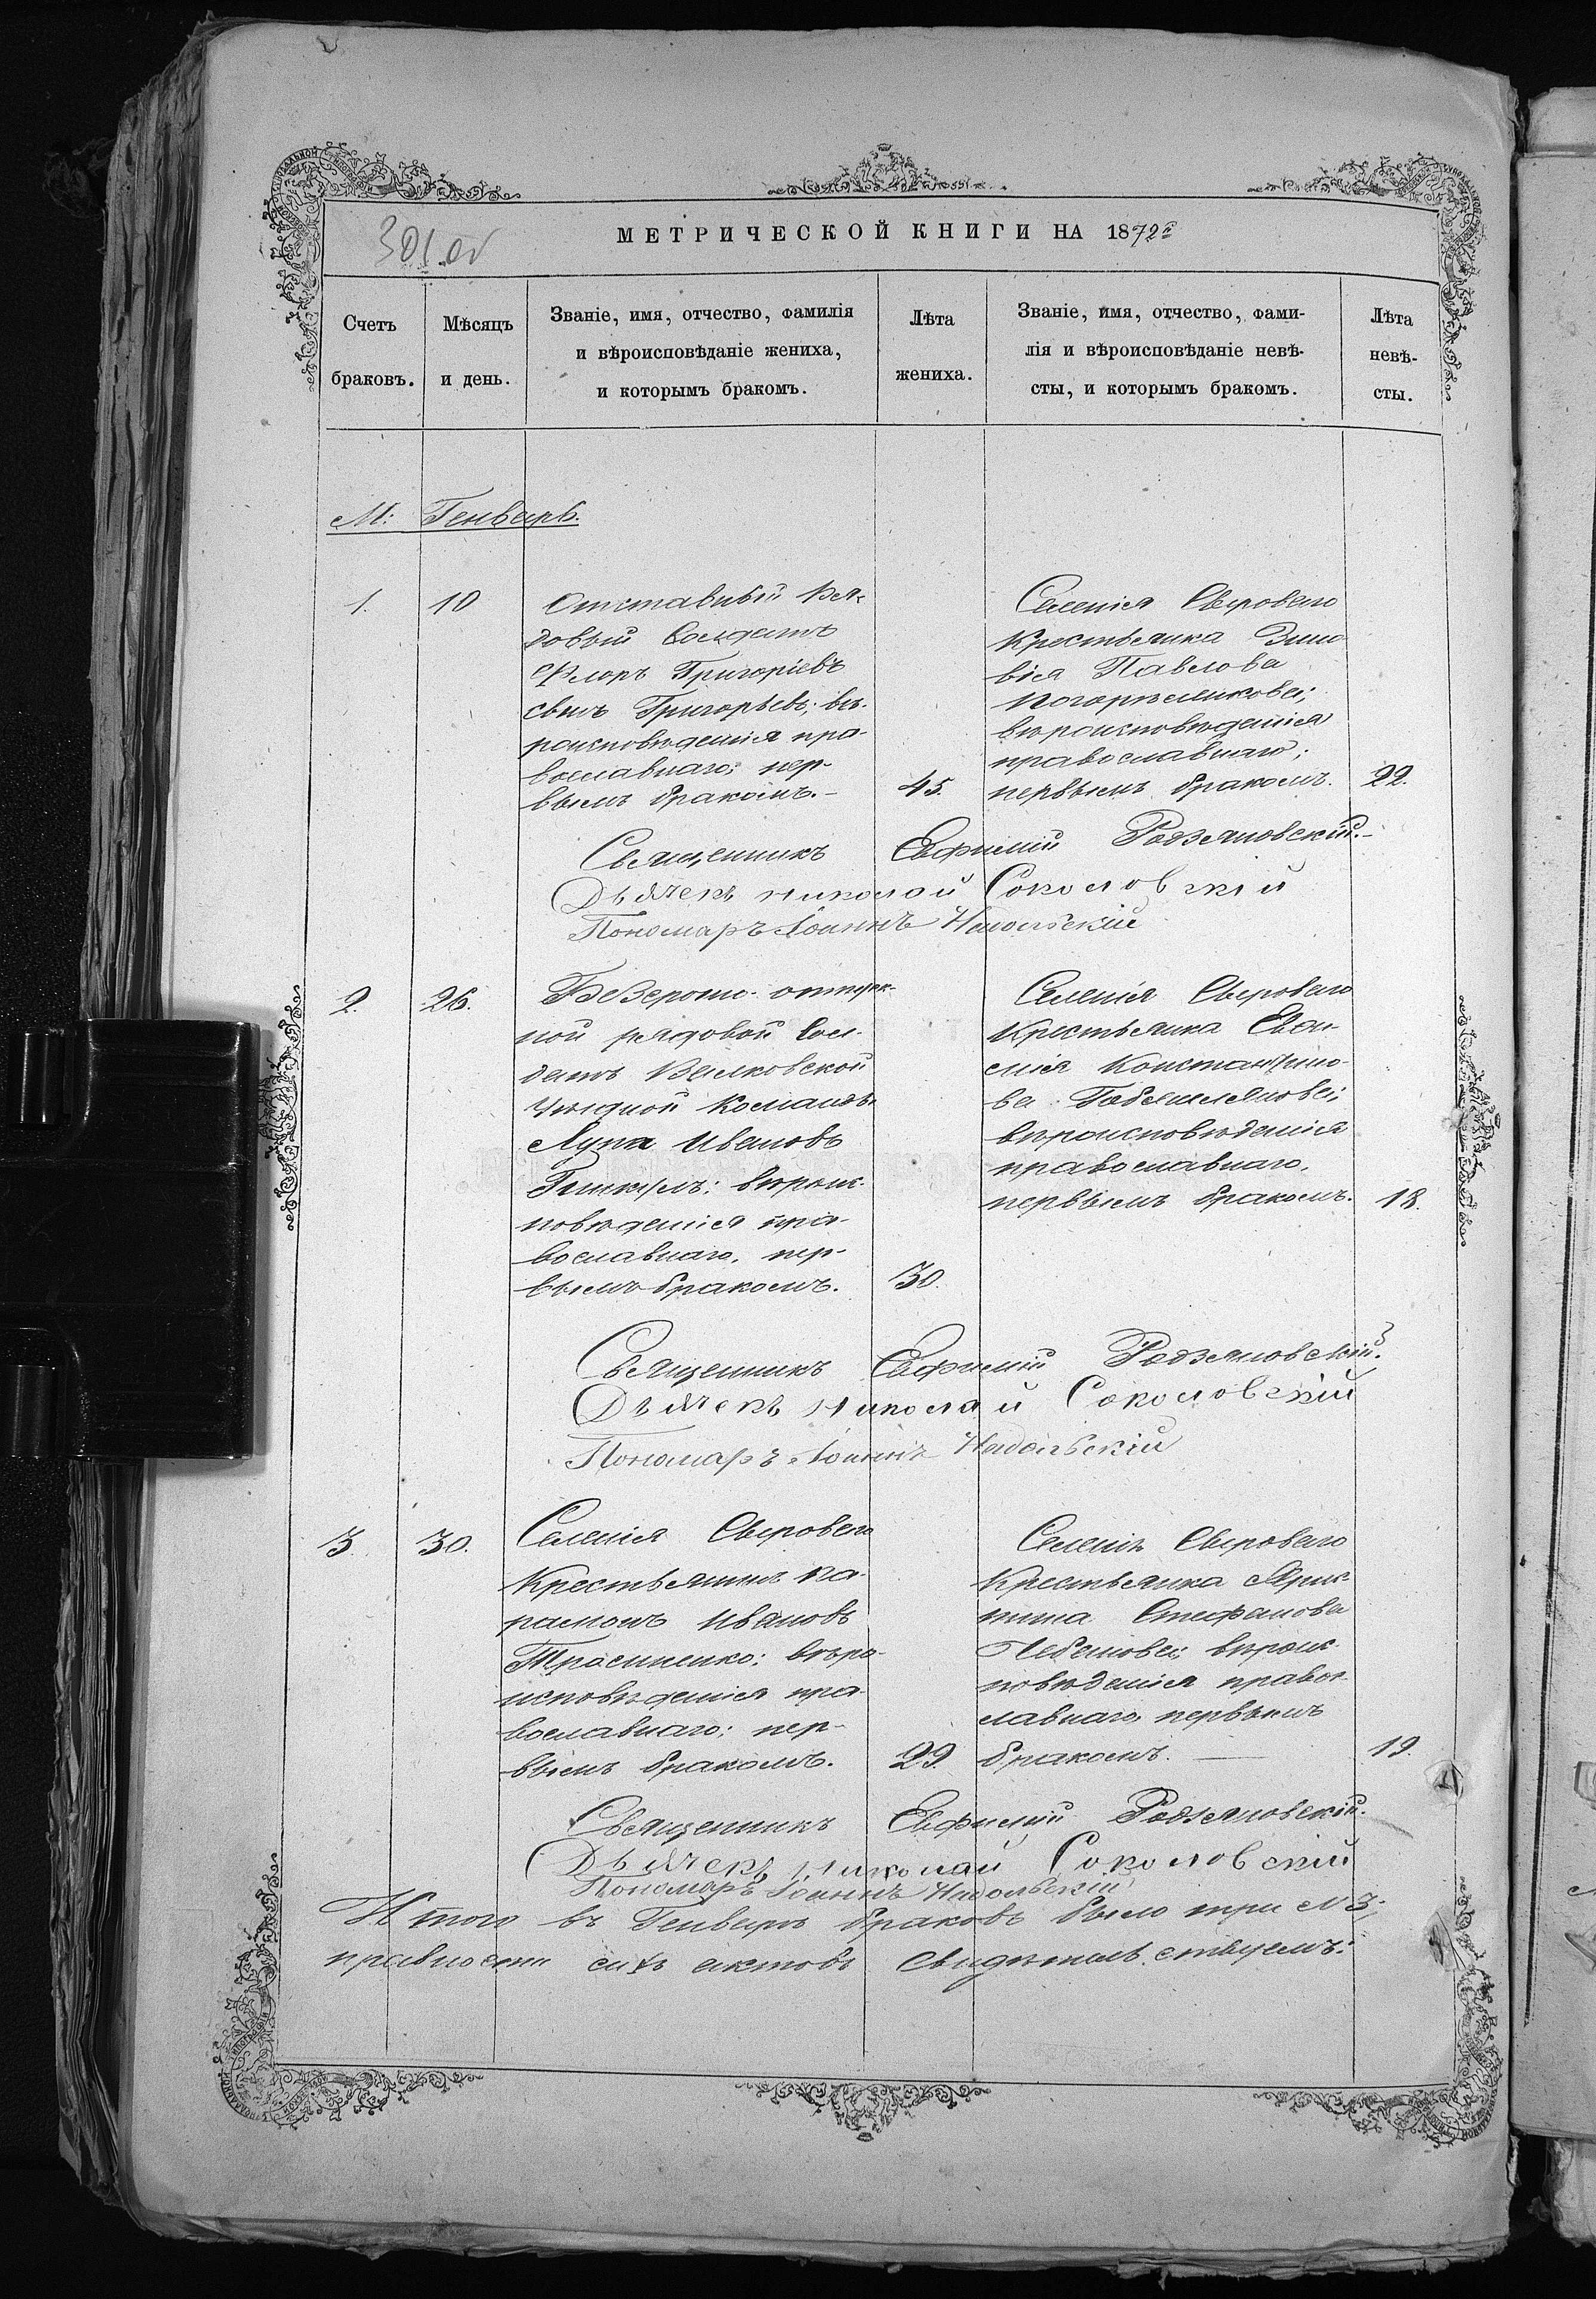 301 об
МЕТРИЧЕСКОЙ КНИГИ НА 1872й
Счетъ
браковъ.
Мѣсяцъ
и день.
Званіе, имя, отчество, фамилія
и вѣроисповѣданіе жениха,
и которымъ бракомъ.
Лѣта
жениха.
Званіе, имя, отчество, фами-
лія и вѣроисповѣданіе невѣ-
сты, и которымъ бракомъ.
Лѣта
невѣ-
сты.
М: Генварь.
1.
10
Отставный Ря-
довый Солдатъ
Флоръ Григоріевъ
сынъ Григорьевъ; вѣ-
роисповѣданія пра-
вославнаго; пер-
вымъ бракомъ.-
45.
Селенія Сыроваго
Крестьянка Зино
вія Павлова
Погорѣликова;
вѣроисповѣданія
православнаго;
первымъ бракомъ.
22.
Священникъ Евфимій
Дьячекъ Николай Соколовскій
Пономаръ Іоаннъ
2.
26.
рядовой Сол-
датъ Валковской
Уѣздной Команды
Лука Ивановъ
вѣроис-
повѣданія пра-
вославнаго. пер-
вымъ бракомъ.
30.
Селенія Сыроваго
Крестьянка Евѳи-
мія Константино-
ва
вѣроисповѣданія
православнаго.
первымъ бракомъ.
18.
Священникъ Евфимій
Дьячекъ Николай Соколовскій
Пономаръ Іоаннъ
3.
30.
Селенія Сыроваго
Крестьянинъ Ха-
рамонъ Ивановъ
вѣро-
исповѣданія пра-
вославнаго; пер-
вымъ бракомъ.
29.
Селенія Сыроваго
Крестьянка
Стефанова
вѣроис-
повѣданія правос-
лавнаго, первымъ
бракомъ.
19.
Священникъ Евфимій
Дьячекъ Николай Соколовскій
Пономаръ Іоаннъ
Итого въ Генварѣ браковъ было три № 3;
сихъ актовъ свидѣтельствуемъ: